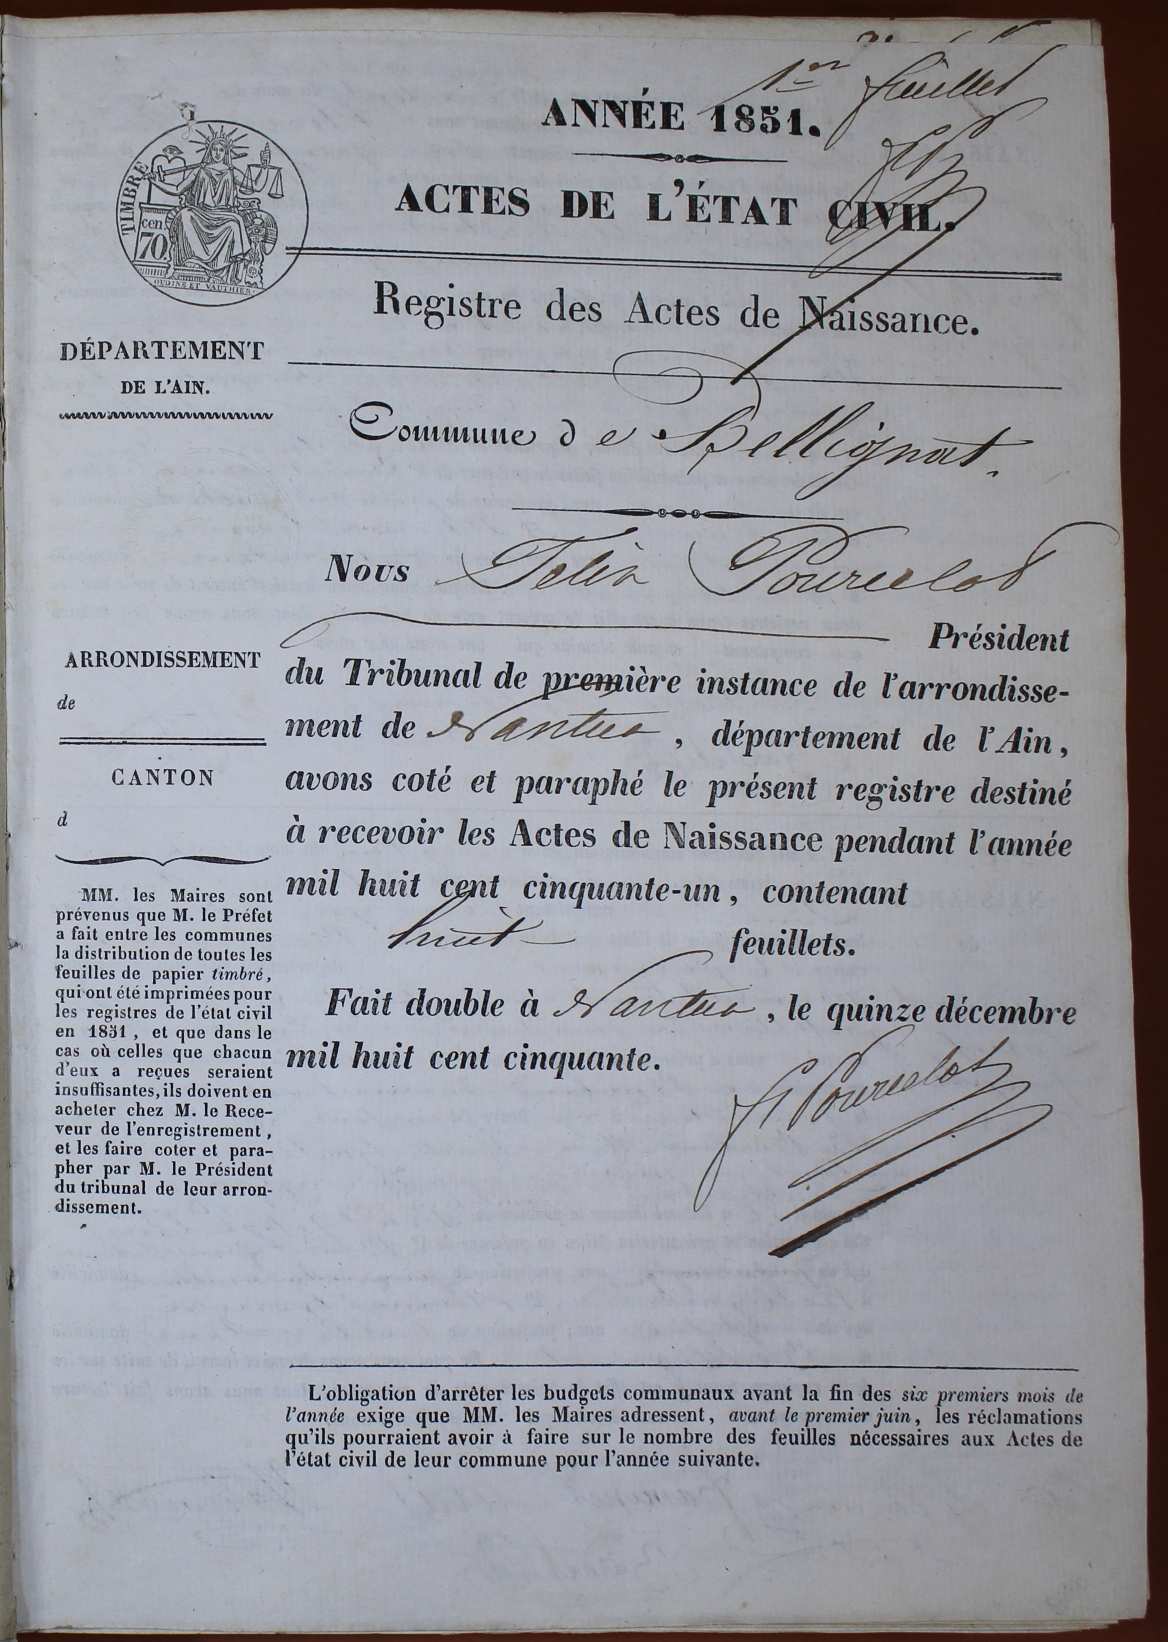 1er feuillet
ANNÉE 1851.
TIMBRE
cen.
70.
OUDINÉ ET VAUTHIER.
ACTES DE L'ÉTAT CIVIL.
Registre des Actes de Naissance.
DÉPARTEMENT
DE L'AIN.
Commune de Bellignat.
Nous Felix Pourcelot
Président
ARRONDISSEMENT
de
CANTON
d
du Tribunal de première instance de l'arrondisse-
ment de Nantua, département de l'Ain,
avons coté et paraphé le présent registre destiné
à recevoir les Actes de Naissance pendant l'année
mil huit cent cinquante-un, contenant
huit feuillets.
Fait double à Nantua, le quinze décembre
mil huit cent cinquante.
F Pourcelot
MM. les Maires sont
prévenus que M. le Préfet
a fait entre les communes
la distribution de toutes les
feuilles de papier timbré,
qui ont été imprimées pour
les registres de l'état civil
en 1851, et que dans le
cas où celles que chacun
d'eux a reçues seraient
insuffisantes, ils doivent en
acheter chez M. le Rece-
veur de l'enregistrement,
et les faire coter et para-
pher par M. le Président
du tribunal de leur arron-
dissement.
L'obligation d'arrêter les budgets communaux avant la fin des six premiers mois de
l'année exige que MM. les Maires adressent, avant le premier juin, les réclamations
qu'ils pourraient avoir à faire sur le nombre des feuilles nécessaires aux Actes de
l'état civil de leur commune pour l'année suivante.